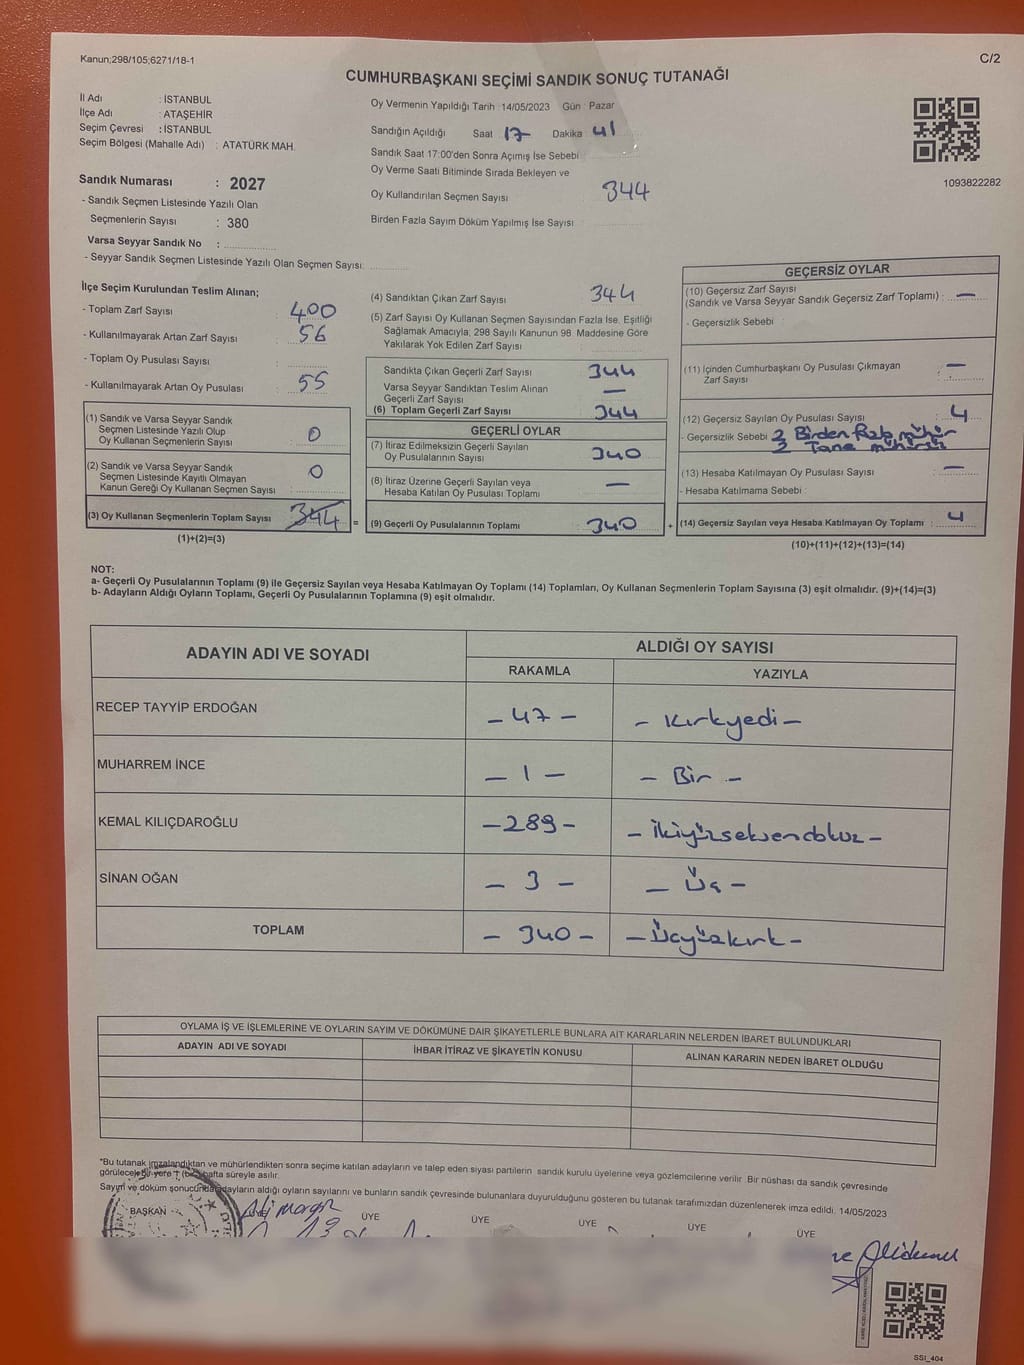 Kanun;298/105;6271/18-1
C/2
CUMHURBAŞKANI SEÇİMİ SANDIK SONUÇ TUTANAĞI
İl Adı : İSTANBUL
İlçe Adı : ATAŞEHİR
Seçim Çevresi : İSTANBUL
Seçim Bölgesi (Mahalle Adı) : ATATÜRK MAH.
Sandık Numarası : 2027
- Sandık Seçmen Listesinde Yazılı Olan
Seçmenlerin Sayısı : 380
Varsa Seyyar Sandık No :
- Seyyar Sandık Seçmen Listesinde Yazılı Olan Seçmen Sayısı:
Oy Vermenin Yapıldığı Tarih : 14/05/2023 Gün : Pazar
Sandığın Açıldığı Saat 17 Dakika 41
Sandık Saat 17:00'den Sonra Açımış İse Sebebi :
Oy Verme Saati Bitiminde Sırada Bekleyen ve
Oy Kullandırılan Seçmen Sayısı 344
Birden Fazla Sayım Döküm Yapılmış İse Sayısı
1093822282
İlçe Seçim Kurulundan Teslim Alınan;
- Toplam Zarf Sayısı : 400
- Kullanılmayarak Artan Zarf Sayısı : 56
- Toplam Oy Pusulası Sayısı :
- Kullanılmayarak Artan Oy Pusulası : 55
(1) Sandık ve Varsa Seyyar Sandık
Seçmen Listesinde Yazılı Olup
Oy Kullanan Seçmenlerin Sayısı 0
(2) Sandık ve Varsa Seyyar Sandık
Seçmen Listesinde Kayıtlı Olmayan
Kanun Gereği Oy Kullanan Seçmen Sayısı : 0
(3) Oy Kullanan Seçmenlerin Toplam Sayısı 344 =
(1)+(2)=(3)
(4) Sandıktan Çıkan Zarf Sayısı 344
(5) Zarf Sayısı Oy Kullanan Seçmen Sayısından Fazla İse, Eşitliği
Sağlamak Amacıyla; 298 Sayılı Kanunun 98. Maddesine Göre
Yakılarak Yok Edilen Zarf Sayısı
Sandıkta Çıkan Geçerli Zarf Sayısı 344
Varsa Seyyar Sandıktan Teslim Alınan
Geçerli Zarf Sayısı —
(6) Toplam Geçerli Zarf Sayısı 344
GEÇERLİ OYLAR
(7) İtiraz Edilmeksizin Geçerli Sayılan
Oy Pusulalarının Sayısı 340
(8) İtiraz Üzerine Geçerli Sayılan veya
Hesaba Katılan Oy Pusulası Toplamı —
(9) Geçerli Oy Pusulalarının Toplamı 340 +
GEÇERSİZ OYLAR
(10) Geçersiz Zarf Sayısı
(Sandık ve Varsa Seyyar Sandık Geçersiz Zarf Toplamı) : —
- Geçersizlik Sebebi :
(11) İçinden Cumhurbaşkanı Oy Pusulası Çıkmayan
Zarf Sayısı : —
(12) Geçersiz Sayılan Oy Pusulası Sayısı 4
- Geçersizlik Sebebi 2 Birden Fazla mühür
2 Tane mühürsüz
(13) Hesaba Katılmayan Oy Pusulası Sayısı —
- Hesaba Katılmama Sebebi :
(14) Geçersiz Sayılan veya Hesaba Katılmayan Oy Toplamı : 4
(10)+(11)+(12)+(13)=(14)
NOT:
a- Geçerli Oy Pusulalarının Toplamı (9) ile Geçersiz Sayılan veya Hesaba Katılmayan Oy Toplamı (14) Toplamları, Oy Kullanan Seçmenlerin Toplam Sayısına (3) eşit olmalıdır. (9)+(14)=(3)
b- Adayların Aldığı Oyların Toplamı, Geçerli Oy Pusulalarının Toplamına (9) eşit olmalıdır.
ADAYIN ADI VE SOYADI ALDIĞI OY SAYISI
RAKAMLA YAZIYLA
RECEP TAYYİP ERDOĞAN - 47 - - Kırkyedi -
MUHARREM İNCE - 1 - - Bir -
KEMAL KILIÇDAROĞLU - 289 - - ikiyüzseksendokuz -
SİNAN OĞAN - 3 - - Üç -
TOPLAM - 340 - - Üçyüzkırk -
OYLAMA İŞ VE İŞLEMLERİNE VE OYLARIN SAYIM VE DÖKÜMÜNE DAİR ŞİKAYETLERLE BUNLARA AİT KARARLARIN NELERDEN İBARET BULUNDUKLARI
ADAYIN ADI VE SOYADI İHBAR İTİRAZ VE ŞİKAYETİN KONUSU ALINAN KARARIN NEDEN İBARET OLDUĞU
*Bu tutanak imzalandıktan ve mühürlendikten sonra seçime katılan adayların ve talep eden siyasi partilerin sandık kurulu üyelerine veya gözlemcilerine verilir. Bir nüshası da sandık çevresinde
görülecek bir yere 1 (bir) hafta süreyle asılır.
Sayım ve döküm sonucunda adayların aldığı oyların sayılarını ve bunların sandık çevresinde bulunanlara duyurulduğunu gösteren bu tutanak tarafımızdan düzenlenerek imza edildi. 14/05/2023
BAŞKAN ÜYE ÜYE ÜYE ÜYE ÜYE ÜYE
SSI_404